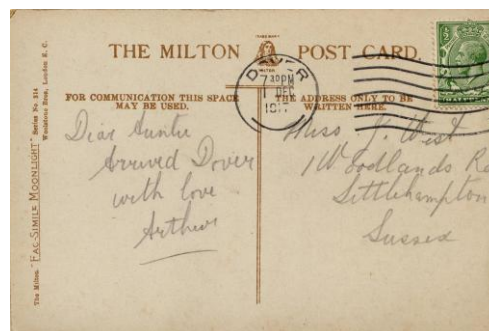 THE MILTON POST CARD
TRADE MARK
MILTON
DOVER
7 30 PM
1 DEC
191
FOR COMMUNICATION THIS SPACE
MAY BE USED.
THE ADDRESS ONLY TO BE
WRITTEN HERE.
Dear Auntie
Arrived Dover
with love
Arthur
Miss J. West
1 Woodlands Rd
Littlehampton
Sussex
The Milton "FAC-SIMILE MOONLIGHT" Series No. 314
Woolstone Bros., London E. C.